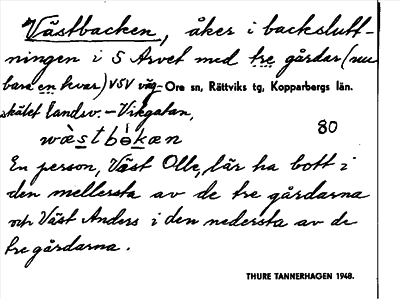 Västbacken, åker i backslutt-
ningen i S Arvet med tre gårdar (nu
bara en kvar) VSV väg-Ore sn, Rättviks tg, Kopparbergs län.
skälet landsv. – Vikgatan,
80
En person, Väst Olle, lär ha bott i
den mellersta av de tre gårdarna
och Väst Anders i den nedersta av de
tre gårdarna.
THURE TANNERHAGEN 1948.